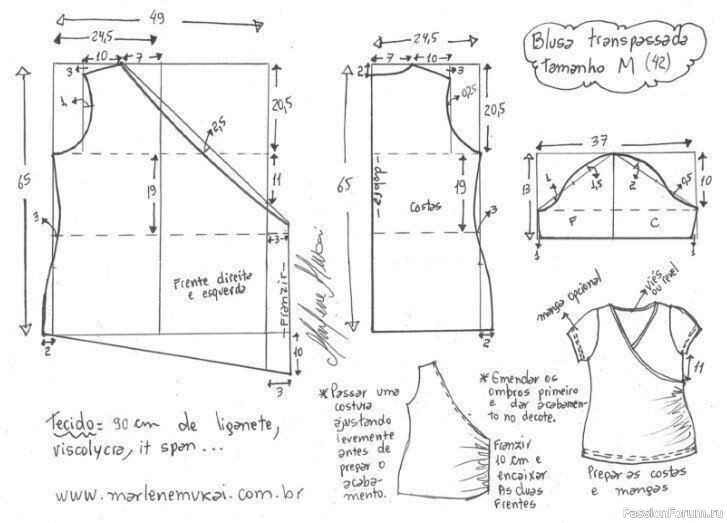 49
24,5
10
7
3
1
2,5
20,5
11
65
19
3
3
Frente direita
e esquerda
Franzir
Marlene Mukai
2
10
3
24,5
7
10
3
2
0,25
20,5
65
dobra
19
costas
3
2
Blusa transpassada
tamanho M (42)
37
13
10
1
1,5
2
0,5
F
C
1
1
manga opcional
viés
ou revel
11
Tecido = 90 cm de liganete,
viscolycra, it span...
www.marlenemukai.com.br
* Passar uma
costura
ajustando
levemente
antes de
pregar o
acaba-
mento.
* Emendar os
ombros primeiro
e dar acabamen-
to no decote.
Franzir
10 cm e
encaixar
As duas
Frentes
Pregar as costas
e mangas
PassionForum.ru